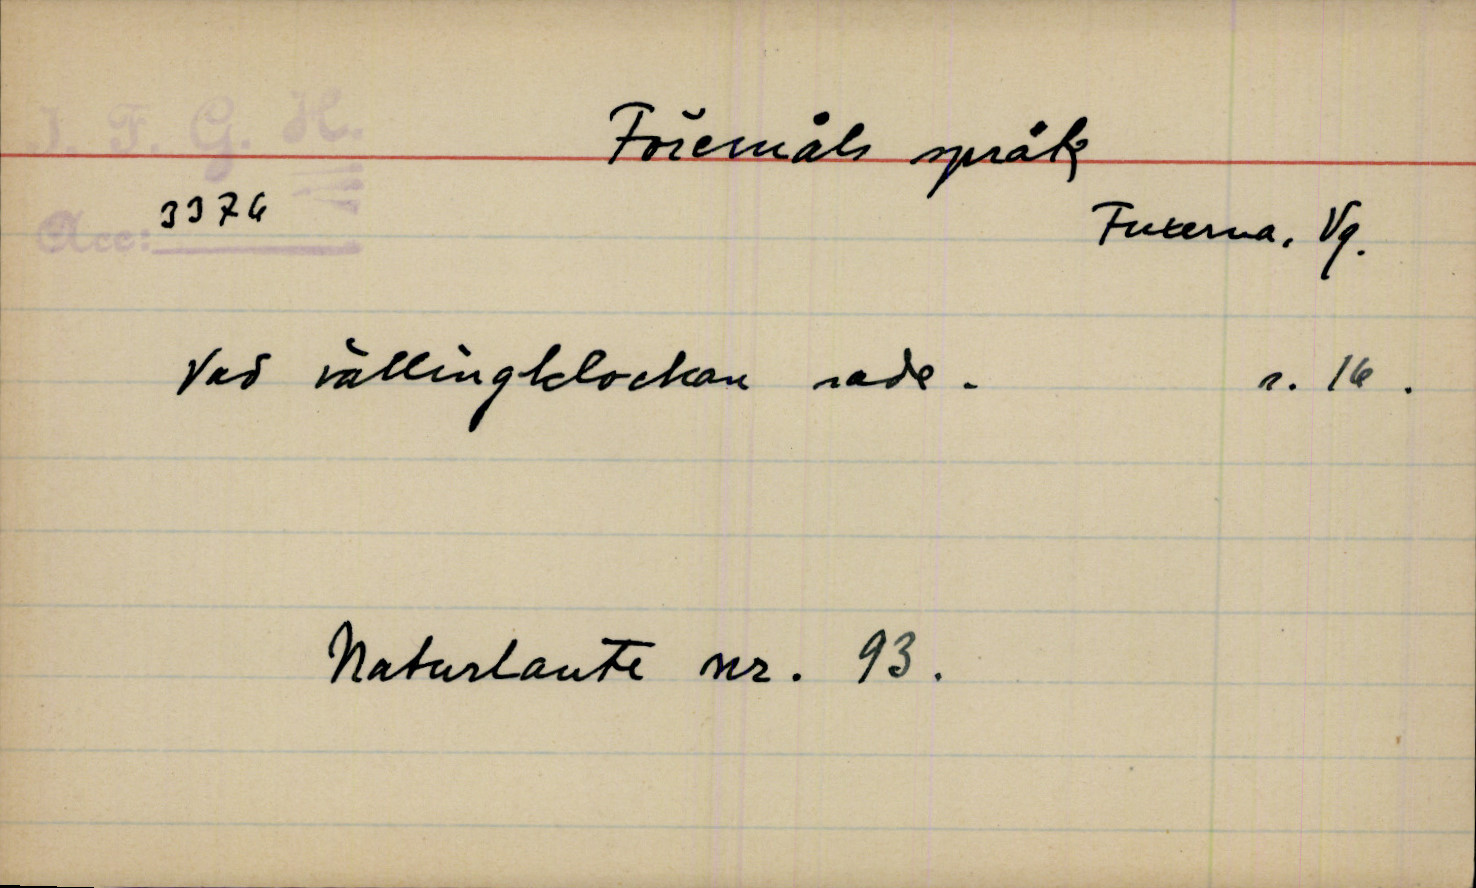 I. F. G. H.
Föremåls språk
Acc: 3374
Fuxerna, Vg.
Vad vällingklockan sade. s. 16.
Naturlaute nr. 93.